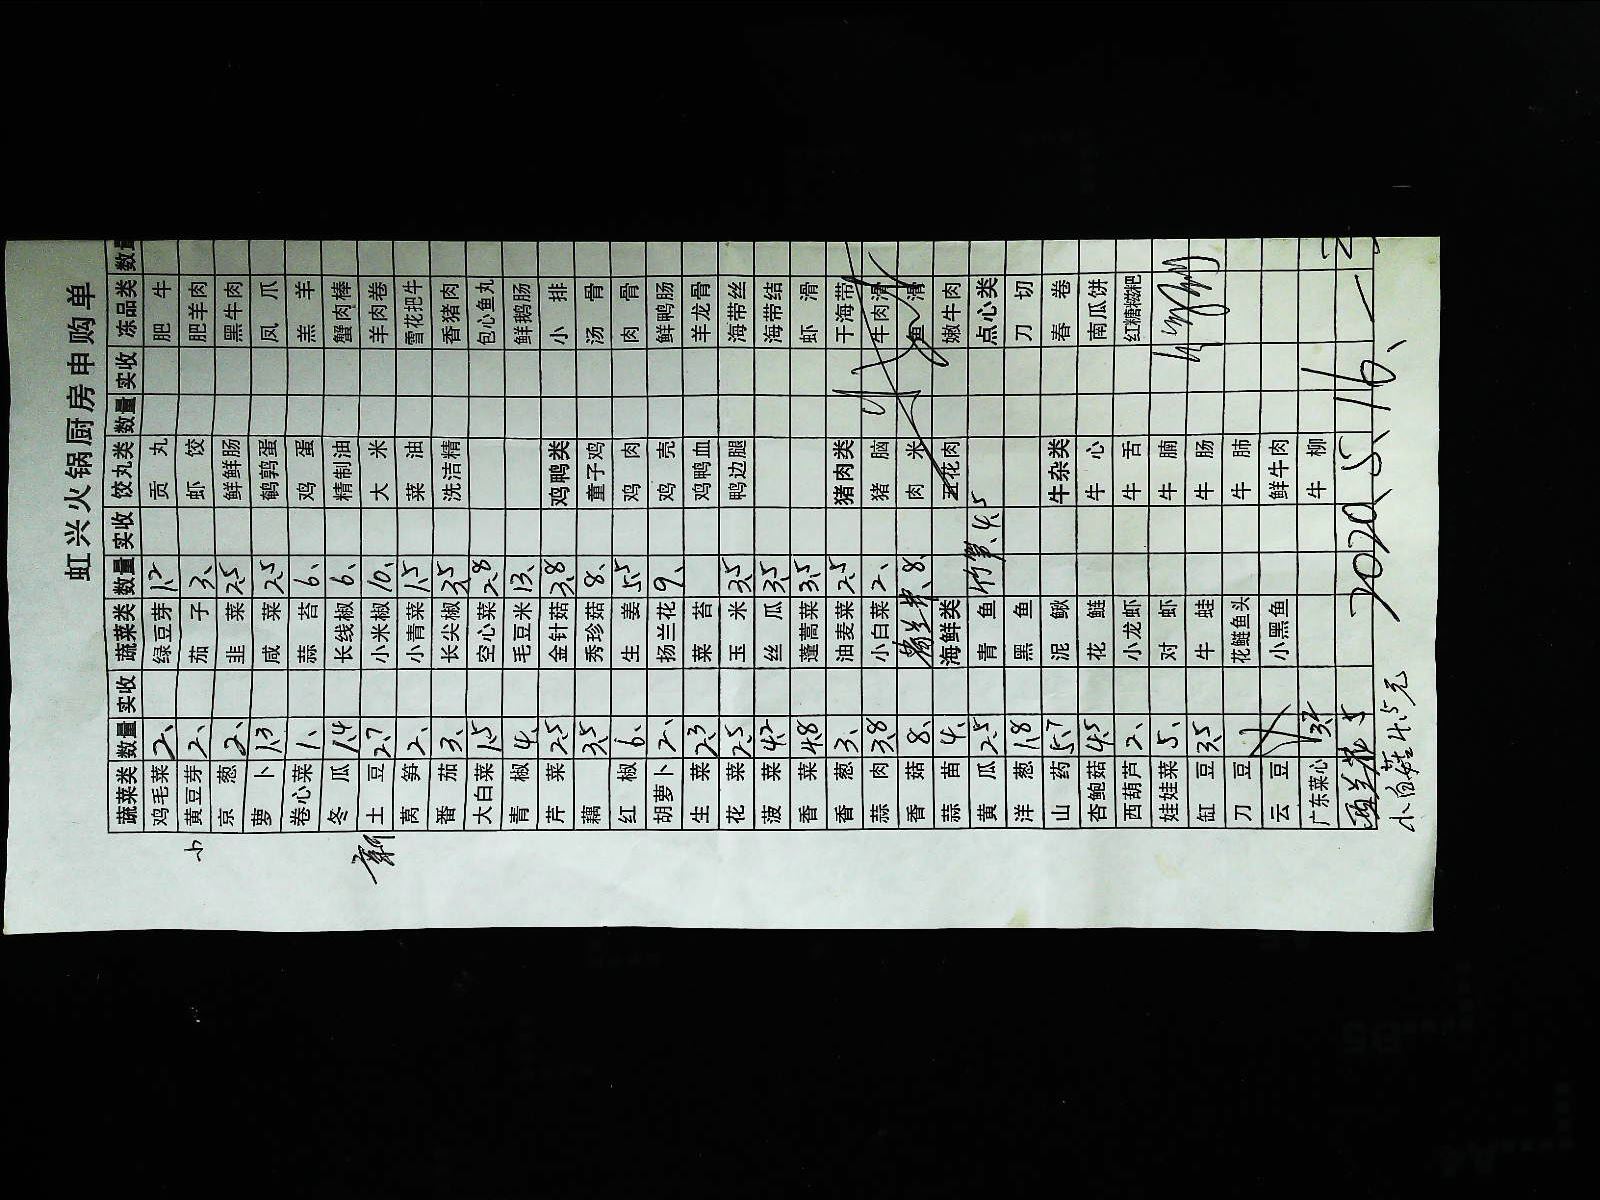 虹兴火锅厨房申购单
蔬菜类 数量 实收 蔬菜类 数量 实收 饺丸类 数量 实收 冻品类 数量
鸡毛菜 2、 绿豆芽 1.2 贡丸 肥牛
小 黄豆芽 2、 茄子 3、 虾饺 肥羊肉
京葱 2、 韭菜 2.5 鲜鲜肠 黑牛肉
萝卜 1.3 咸菜 2.5 鹌鹑蛋 凤爪
卷心菜 1、 蒜苔 6、 鸡蛋 羔羊
冬瓜 1.4 长线椒 6、 精制油 蟹肉棒
新 土豆 2.7 小米椒 10、 大米 羊肉卷
莴笋 2、 小青菜 1.5 菜油 雪花把牛
番茄 3、 长尖椒 3.5 洗洁精 香猪肉
大白菜 1.5 空心菜 2.8 包心鱼丸
青椒 4、 毛豆米 13、 鲜鹅肠
芹菜 2.5 金针菇 3.8 鸡鸭类 小排
藕 3.5 秀珍菇 8、 童子鸡 汤骨
红椒 6、 生姜 5.5 鸡肉 肉骨
胡萝卜 2、 扬兰花 9、 鸡壳 鲜鸭肠
生菜 2.3 菜苔 鸡鸭血 羊龙骨
花菜 2.5 玉米 3.5 鸭边腿 海带丝
菠菜 4.2 丝瓜 3.5 海带结
香菜 4.8 蓬蒿菜 3.5 虾滑
香葱 3、 油麦菜 2.5 猪肉类 干海带
蒜肉 3.8 小白菜 2、 猪脑 牛肉滑
香菇 8、 8、 肉米 鱼滑
蒜苗 4、 海鲜类 五花肉 嫩牛肉
黄瓜 2.5 青鱼 4.5 点心类
洋葱 1.8 黑鱼 刀切
山药 5.7 泥鳅 牛杂类 春卷
杏鲍菇 4.5 花鲢 牛心 南瓜饼
西葫芦 2、 小龙虾 牛舌 红糖糍粑
娃娃菜 5、 对虾 牛腩
缸豆 3.5 牛蛙 牛肠
刀豆 花鲢鱼头 牛肺
云豆 小黑鱼 鲜牛肉
广东菜心 3.2 牛柳
西兰花 5 2020、5、16、
小白菇 4.5元